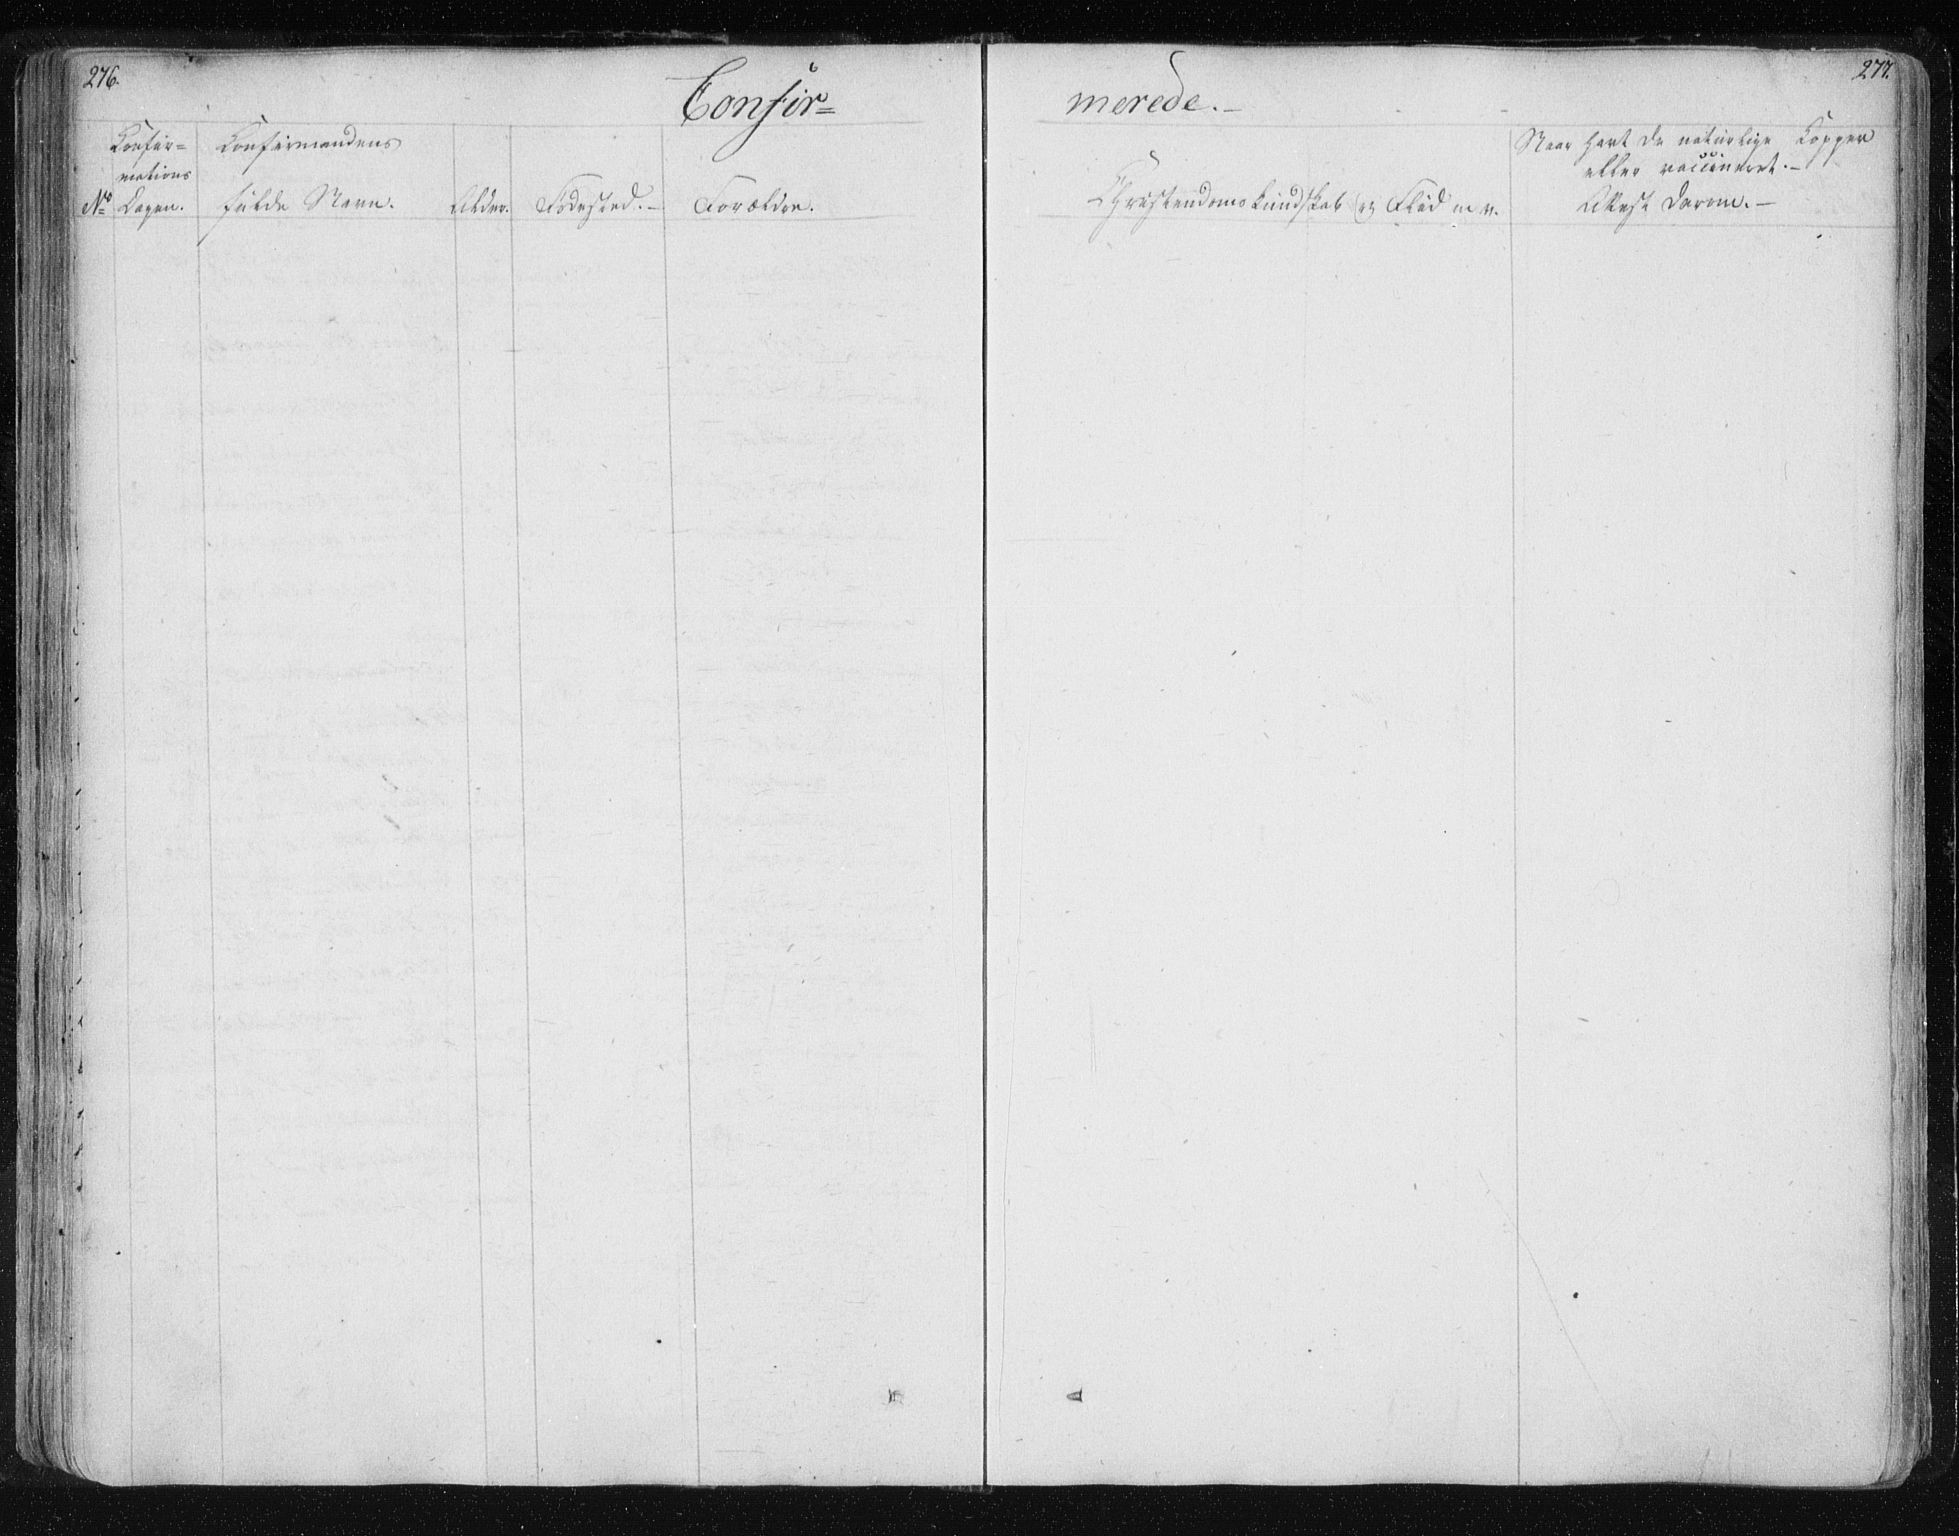 276.
Confir=
merede.-
277.
No
Confir=
mations
Dagen.
Confirmandens
fulde Navn.
Alder.
Fødested.-
Forældre.
Christendoms Kundskab og Flid m v.
Naar havt de naturlige Kopper
eller vaccineret.-
Attest derom.-